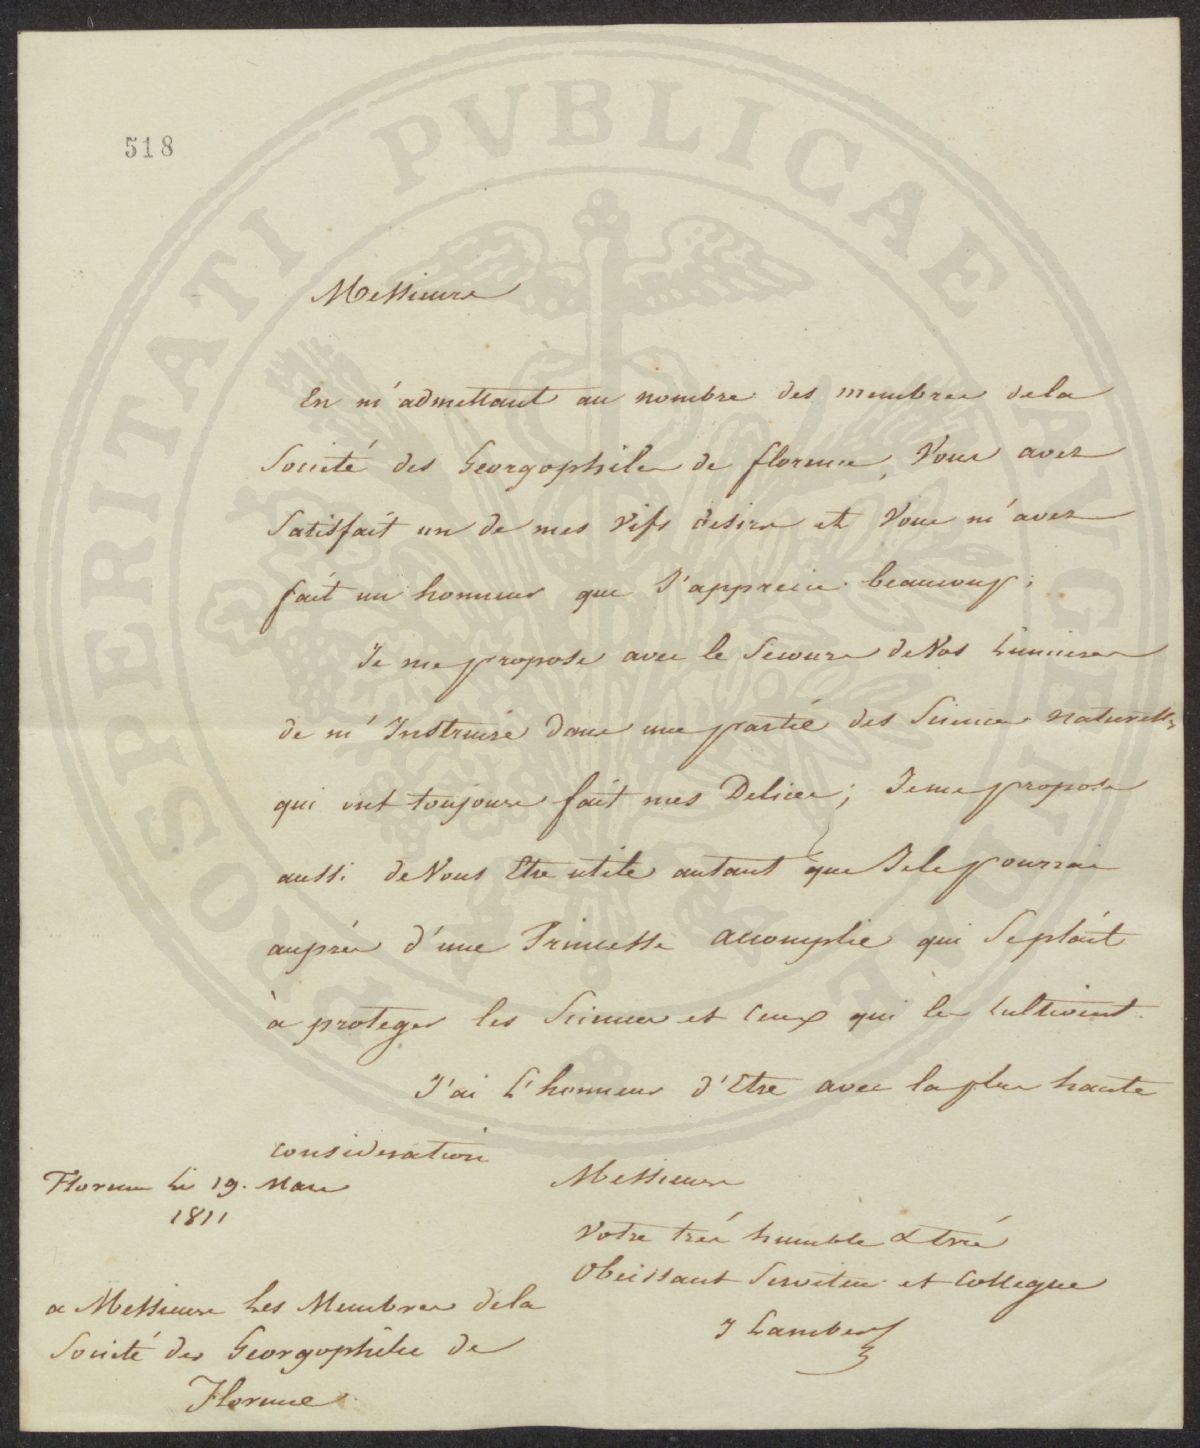 PROSPERITATI PVBLICAE AVGENDAE
518
Messieurs
En m'admettant au nombre des membres dela
Société des Georgophiles de florence, Vous avez
Satisfait un de mes vifs desirs et Vous m'avez
fait un honneur que J'apprecie beaucoup;
Je me propose avec le Secours de Vos Lumieres
de m'Instruire dans une partié des Sciences naturelles
qui ont toujours fait mes Delices; Je me propose
aussi de Vous Etre utile autant que Je le pourrai
auprés d'une Princesse accomplie qui Se plait
à proteger les Sciences et Ceux qui les Cultivent.
J'ai L'honneur d'Etre avec la plus haute
consideration
Messieurs
Votre trés humble & tres
Obeissant Serviteur et Collegue
J Lambert
Florence Le 19. Mars
1811
a Messieurs Les Membres dela
Société des Georgophiles de
Florence